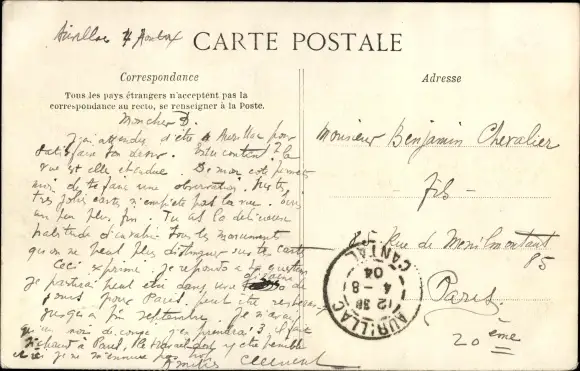 Aurillac 4 Août
CARTE POSTALE
Correspondance
Tous les pays étrangers n'acceptent pas la
correspondance au recto, se renseigner à la Poste.
Mon cher B.
J'ai attendu d'être à Aurillac pour
satisfaire ton désir. Es-tu content? la
vue est elle étendue. De mon coté permets
moi de te faire une observation. tes
très jolies cartes n'empiète pas la vue. Sois
un peu plus fin. Tu as la délicieuse
habitude d'
tous les monuments
qu'on ne peut plus distinguer sur ta carte
Ceci exprimé. Je réponds a ta question
Je partirai peut être dans une
jours pour Paris. peut être
jusqu'à fin septembre. Je n'aurai
qu'un mois de congé. j'en prendrai 3. il fait
chaud à Paris. le travail doit y être pénible
ici je ne m'ennuie pas
Amitiés Clément
Adresse
Monsieur Benjamin Chevalier
Fils
Rue de Menilmontant
85
Paris
20ème
AURILLAC
CANTAL
12
4 - 8
04